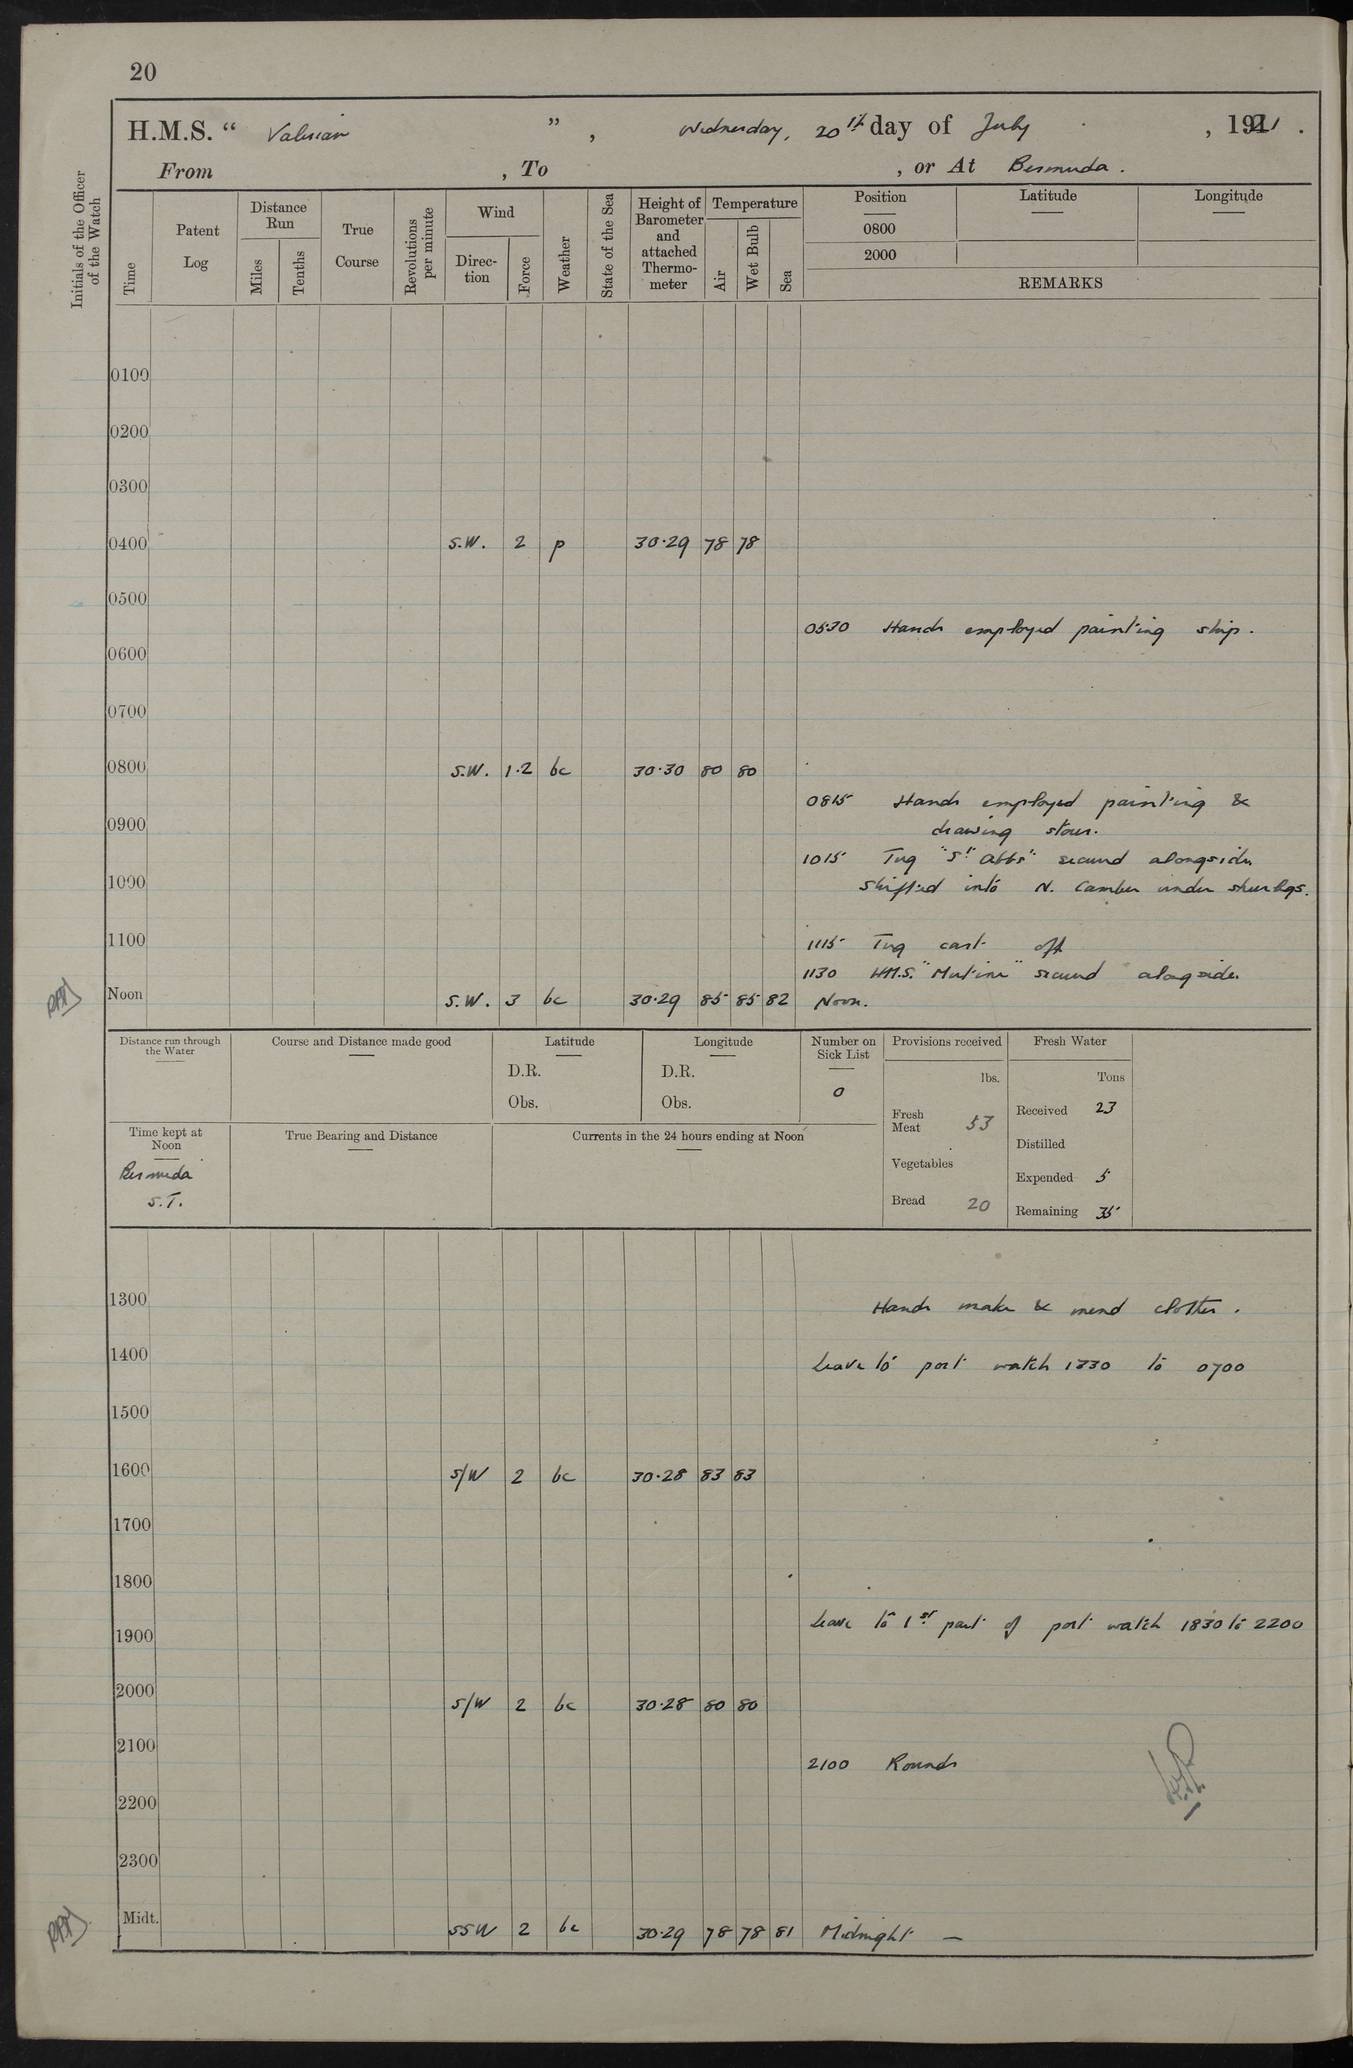 20
H.M.S. “ Valerian ” , Wednesday, 20th day of July , 1921 .
From , To , or At Bermuda .
Initials of the Officer of the Watch
Time
Patent Log
Distance Run
Miles
Tenths
True Course
Revolutions per minute
Wind
Direc-tion
Force
Weather
State of the Sea
Height of Barometer and attached Thermo-meter
Temperature
Air
Wet Bulb
Sea
Position
0800
2000
Latitude
Longitude
REMARKS
0100
0200
0300
0400 S.W. 2 p 30.29 78 78
0500
0530 Hands employed painting ship.
0600
0700
0800 S.W. 1.2 bc 30.30 80 80
0815 Hands employed painting &
0900 drawing stores.
1015 Tug "St Abbs" secured alongside
1000 Shifted into N. Camber under sheerlegs.
1100
1115 Tug cast off
1130 H.M.S. "Mutine" secured alongside.
Noon S.W. 3 bc 30.29 85 85 82 Noon.
Distance run through the Water
Course and Distance made good
Latitude
D.R.
Obs.
Longitude
D.R.
Obs.
Number on Sick List
0
Provisions received
lbs.
Fresh Meat 53
Vegetables
Bread 20
Fresh Water
Tons
Received 23
Distilled
Expended 5
Remaining 35
Time kept at Noon
Bermuda
S.T.
True Bearing and Distance
Currents in the 24 hours ending at Noon
1300 Hands make & mend clothes.
1400 Leave to port watch 1330 to 0700
1500
1600 S/W 2 bc 30.28 83 83
1700
1800
Leave to 1st part of port watch 1830 to 2200
1900
2000 S/W 2 bc 30.28 80 80
2100
2100 Rounds
2200
2300
Midt. SSW 2 bc 30.29 78 78 81 Midnight —